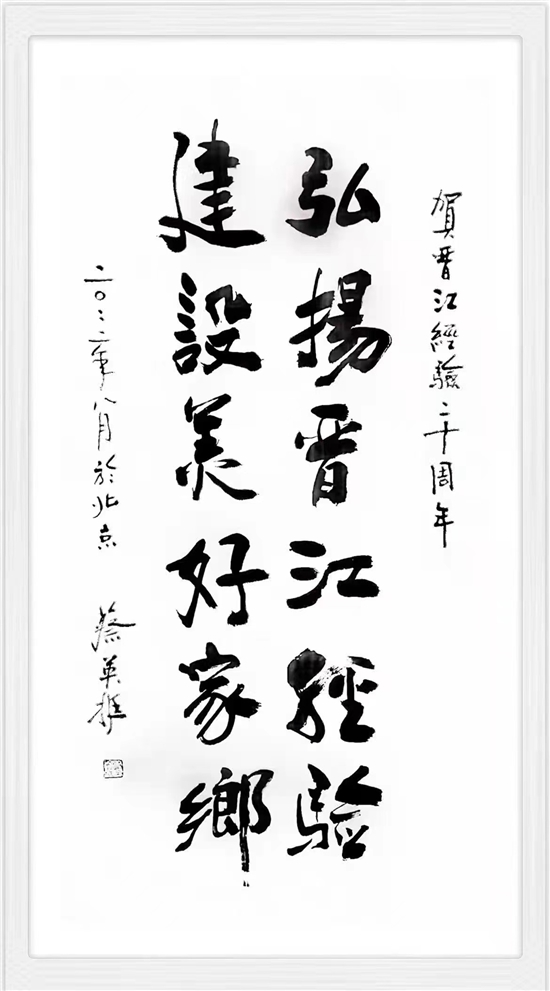 賀晋江經驗二十周年
弘揚晋江經驗
建設美好家鄉
二〇二二年八月於北京
蔡英挺